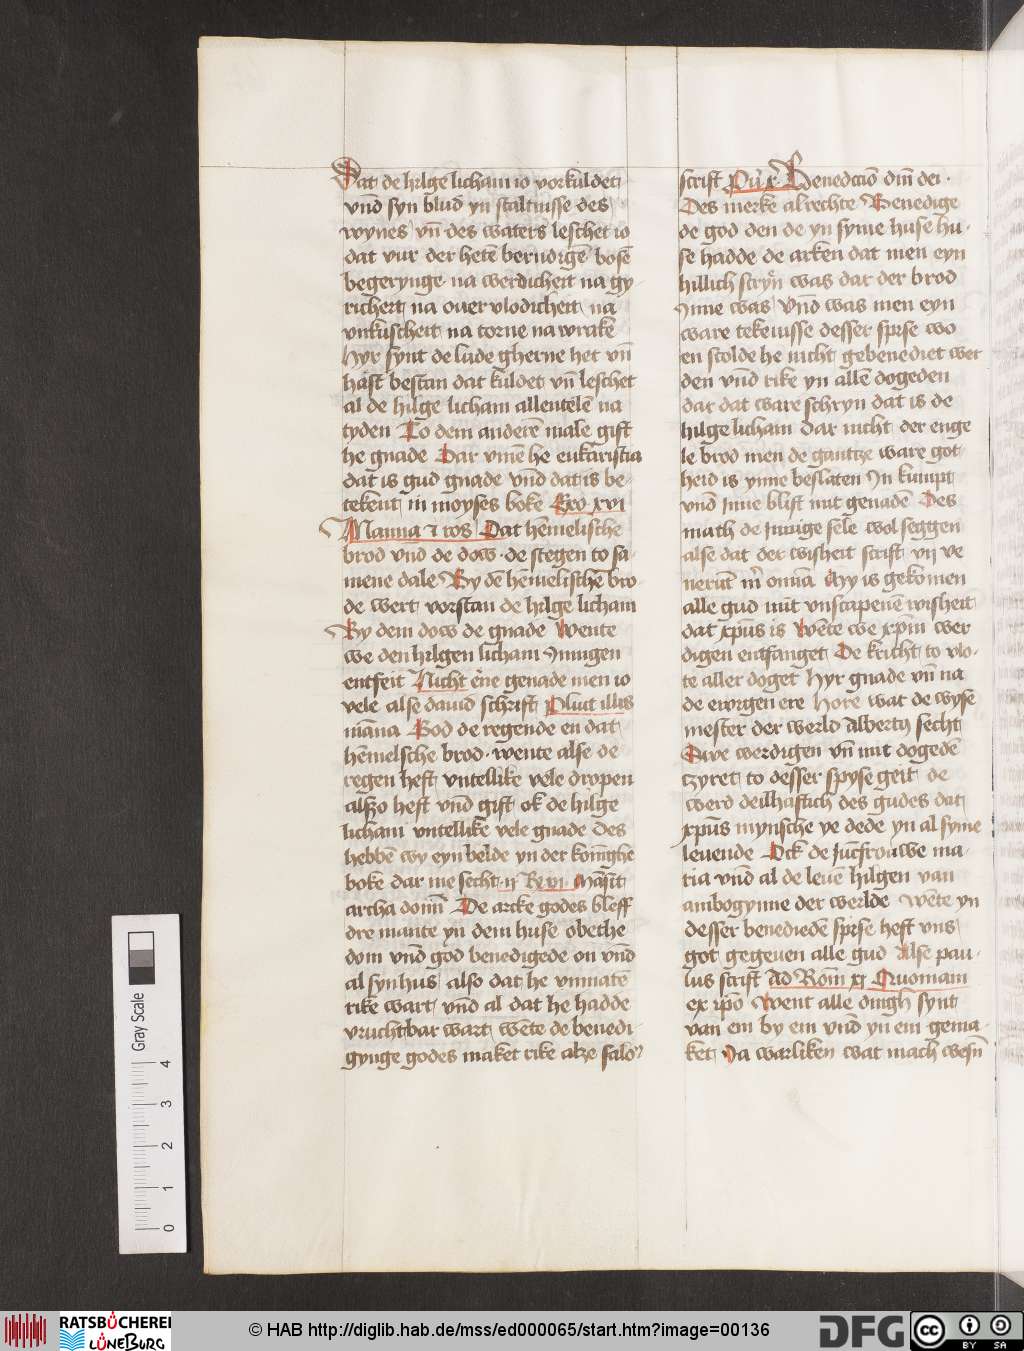 Dat de hilge licham io vorkuldet
vnd syn blud yn staltnisse des
wynes vn̄ des waters leschet io
dat vur der hetē bernd͛igē bosē
begerynge na werdicheit na gy
richeit na ouer vlodicheit na
vnkuscheit na torne na wrake
Hyr synt de lude gherne het vn̄
hast bestan dat kuldet vn̄ leschet
al de hilge licham allentelē na
tyden To dem anderē male gift
he gnade Dar vme he eukaristia
dat is gud gnade vnd dat is be-
tekent in moyses boke Exo xvi
Manna ⁊ ros Dat hēmelische
brod vnd de dow de stegen to sa-
mene dale By dē hēmelischē bro-
de wert vorstan de hilge licham
By dem dow de gnade wente
we den hilgen licham Innigen
entfeit Nicht ene genade men io
vele alse dauid schrift Pluit illis
māna God de regende en dat
hēmelsche brod wente alse de
regen heft vntellike vele dropen
alszo heft vnd gift ok de hilge
licham vntellike vele gnade Des
hebbē wy eyn belde yn der konīghe
boke dar me secht ij Re vi Māsit
archa domī De arcke godes bleff
dre mante yn dem huse obethe
dom vnd god benedigede on vnd
al syn hus also dat he vnmatē
rike wart vnd al dat he hadde
vruchtbar wart wēte de benedi-
gynge godes maket rike alze salo
scrift Benedcciō dm̄ dei
Des merke al rechte Benedige
de god den de yn syme huse hu-
se hadde de arken dat men eyn
hillich scryn was dar der brod
ynne was vnd was men eyn
ware tekenisse desser spise wo
en scolde he nicht gebenediet wer
den vnd rike yn allē dogeden
dar dat ware schryn dat is de
hilge licham dar nicht der enge
le brod men de gantze ware got
heid is ynne beslaten In kumpt
vnd inne blift mit genadē Des
mach de innige sele wol seggen
alse dat der wisheit scrift vij ve
nerūt m̄ omīa My is gekomen
alle gud mit vnscapenē wisheit
dat xpūs is wēte we xpm̄ wer
digen entfanget De kricht to vlo-
te aller doget Hyr gnade vn̄ na
de ewigen ere Hore wat de wyse
mester der werld albertꝰ secht
Dwe werdigen vn̄ mit dogedē
czyret to desser spyse geit de
werd deilhaftich des gudes dat
xpūs mynsche ye dede yn al syme
leuende Ock de Jucfrouwe ma-
ria vnd al de leuē hilgen van
ambogynne der werlde wēte yn
desser benediedē spise heft vns
got gegeuen alle gud Alse pau-
lus scrift Ad Rom̄ xj Quoniam
ex ipō Went alle dingh synt
van em by em vnd yn em gema-
ket Ja warliken wat mach wesn̄
Gray Scale
0 1 2 3 4
RATSBÜCHEREI
LÜNEBURG
© HAB http://diglib.hab.de/mss/ed000065/start.htm?image=00136
DFG
CC BY SA